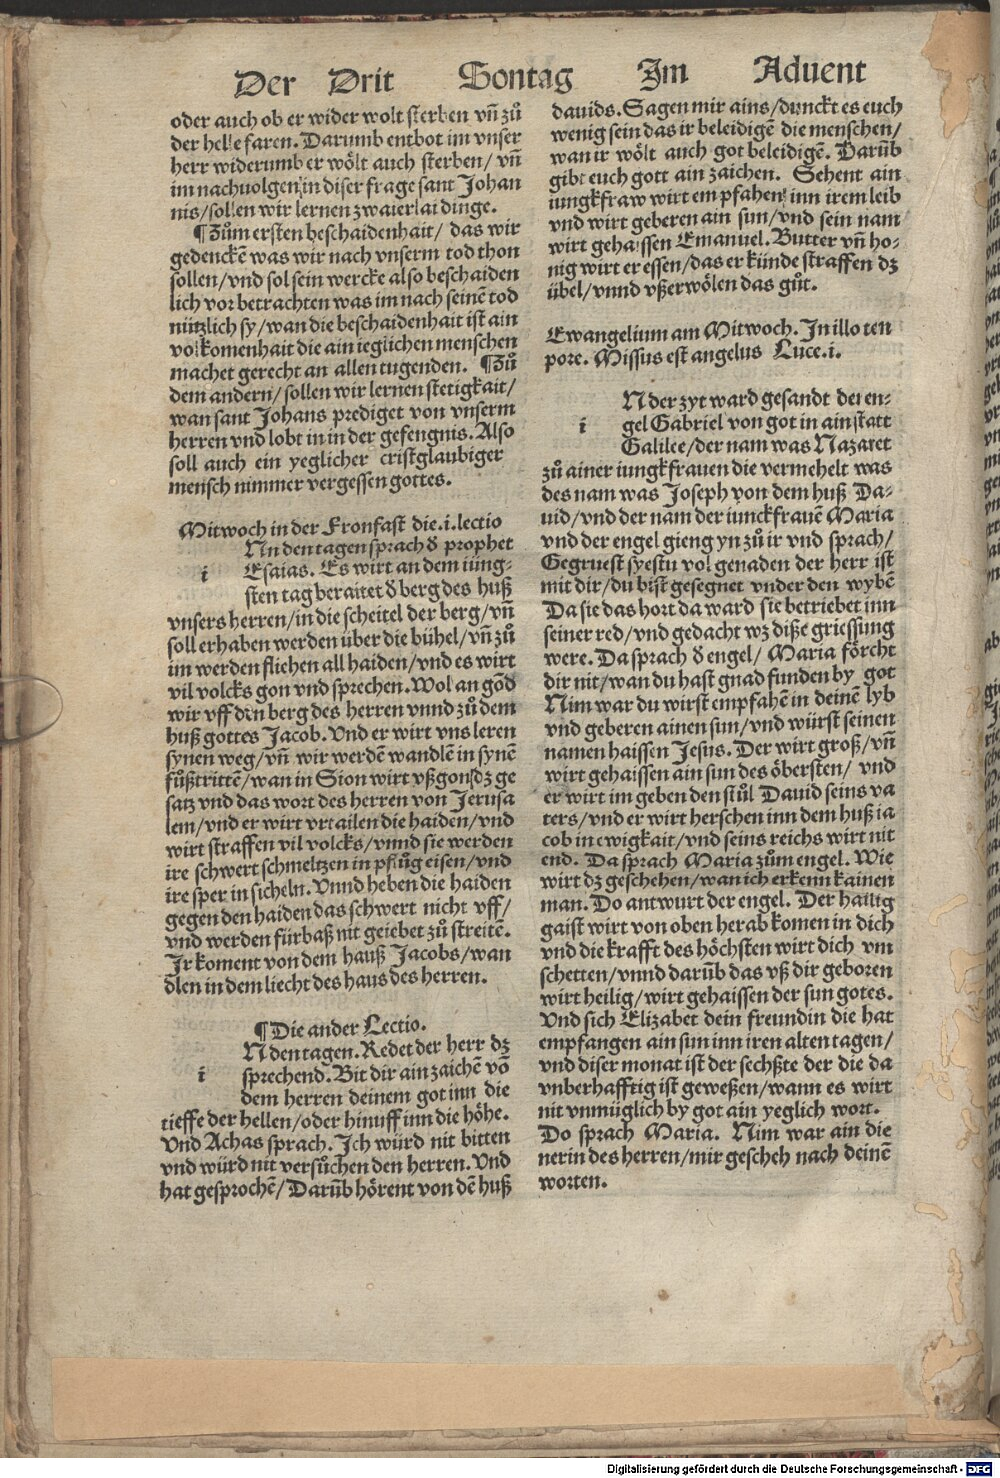 Der Drit Sontag Im Aduent
oder auch ob er wider wolt sterben vñ zuͦ
der helle faren. Darumb entbot im vnser
herr widerumb er woͤlt auch sterben/ vñ
im nachuolgen in diser frage sant Johan
nis/sollen wir lernen zwaierlai dinge.
¶Zuͦm ersten bescheidenhait/ das wir
gedenckẽ was wir nach vnserm tod thon
sollen/vnd sol sein wercke also beschaiden
lich vor betrachten was im nach seinẽ tod
nützlich sy/wan die beschaidenhait ist ain
volkomenhait die ain ieglichen menschen
machet gerecht an allen tugenden. ¶Zuͦ
dem andern/sollen wir lernen stetigkait/
wan sant Johans prediget von vnserm
herren vnd lobt in in der gefengnis. Also
soll auch ein yeglicher cristglaubiger
mensch nimmer vergessen gottes.
Mitwoch in der Fronfast die .i. lectio
i
Nn den tagen sprach d̕ prophet
Esaias. Es wirt an dem iüng-
sten tag beraitet d̕ berg des huß
vnsers herren/in die scheitel der berg/vñ
soll erhaben werden über die bühel/vñ zuͦ
im werden fliehen all haiden/vnd es wirt
vil volcks gon vnd sprechen. Wol an goñd
wir vff den berg des herren vnnd zuͦ dem
huß gottes Jacob. Vnd er wirt vns leren
synen weg/vñ wir werdẽ wandlẽ in synẽ
fuͦßtrittẽ/wan in Sion wirt vßgon dz ge
satz vnd das wort des herren von Jerusa
lem/vnd er wirt vrtailen die haiden/vnd
wirt straffen vil volcks/vnnd sie werden
ire schwert schmeltzen in pfluͦg eisen/vnd
ire sper in sicheln. Vnnd heben die haiden
gegen den haiden das schwert nicht vff/
vnd werden fürbaß nit geiebet zuͦ streitẽ.
Ir koment von dem hauß Jacobs/wan
dlen in dem liecht des haus des herren.
¶Die ander Lectio.
i
N den tagen. Redet der herr dz
sprechend. Bit dir ain zaichẽ võ
dem herren deinem got inn die
tieffe der hellen/oder hinuff inn die höhe.
Vnd Achas sprach. Ich würd nit bitten
vnd würd nit versuͦchen den herren. Vnd
hat gesprochẽ/Darũb hörent von dẽ huß
dauids. Sagen mir ains/dunckt es euch
wenig sein das ir beleidigẽ die menschen/
wan ir woͤlt auch got beleidigẽ. Darũb
gibt euch gott ain zaichen. Sehent ain
iungkfraw wirt empfahen inn irem leib
vnd wirt geberen ain sun/vnd sein nam
wirt gehaissen Emanuel. Butter vñ ho-
nig wirt er essen/das er künde straffen dz
übel/vnnd vßerwoͤlen das guͦt.
Ewangelium am Mitwoch. In illo ten
pore. Missus est angelus Luce.i.
i
N der zyt ward gesandt der en-
gel Gabriel von got in ain statt
Galilee/der nam was Nazaret
zuͦ ainer iungkfrauen die vermehelt was
des nam was Joseph von dem huß Da-
uid/vnd der nam der iunckfrauẽ Maria
vnd der engel gieng yn zuͦ ir vnd sprach/
Gegruest syestu vol genaden der herr ist
mit dir/du bist gesegnet vnder den wybẽ
Da sie das hort da ward sie betriebet inn
seiner red/vnd gedacht wz diße griessung
were. Da sprach d̕ engel/ Maria förcht
dir nit/wan du hast gnad funden by got
Nim war du wirst empfahẽ in deinẽ lyb
vnd geberen ainen sun/vnd würst seinen
namen haissen Jesus. Der wirt groß/vñ
wirt gehaissen ain sun des öbersten/ vnd
er wirt im geben den stuͦl Dauid seins va
ters/vnd er wirt herschen inn dem huß ia
cob in ewigkait/vnd seins reichs wirt nit
end. Da sprach Maria zuͦm engel. Wie
wirt dz geschehen/wan ich erkenn kainen
man. Do antwurt der engel. Der hailig
gaist wirt von oben herab komen in dich
vnd die krafft des höchsten wirt dich vm
schetten/vnnd darũb das vß dir geboren
wirt heilig/wirt gehaissen der sun gotes.
Vnd sich Elizabet dein freundin die hat
empfangen ain sun inn iren alten tagen/
vnd diser monat ist der sechßte der die da
vnberhafftig ist geweßen/wann es wirt
nit vnmüglich by got ain yeglich wort.
Do sprach Maria. Nim war ain die
nerin des herren/mir gescheh nach deinẽ
worten.
Digitalisierung gefördert durch die Deutsche Forschungsgemeinschaft - DFG